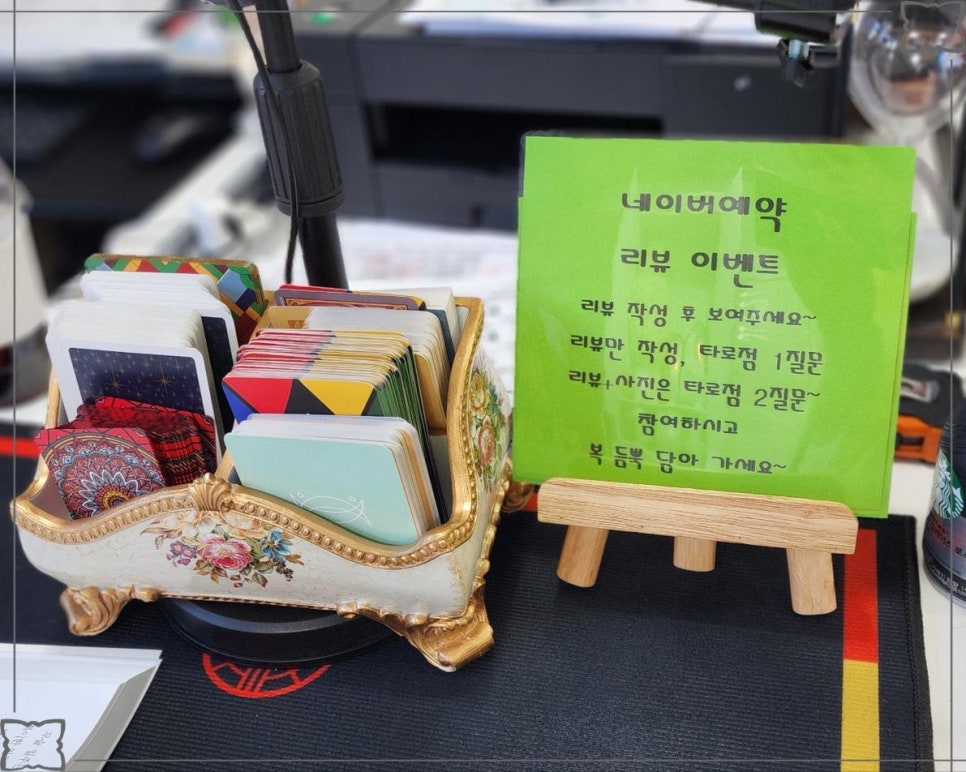 네이버예약
리뷰 이벤트
리뷰 작성 후 보여주세요~
리뷰만 작성, 타로점 1질문
리뷰+사진은 타로점 2질문~
참여하시고
복 듬뿍 담아 가세요~